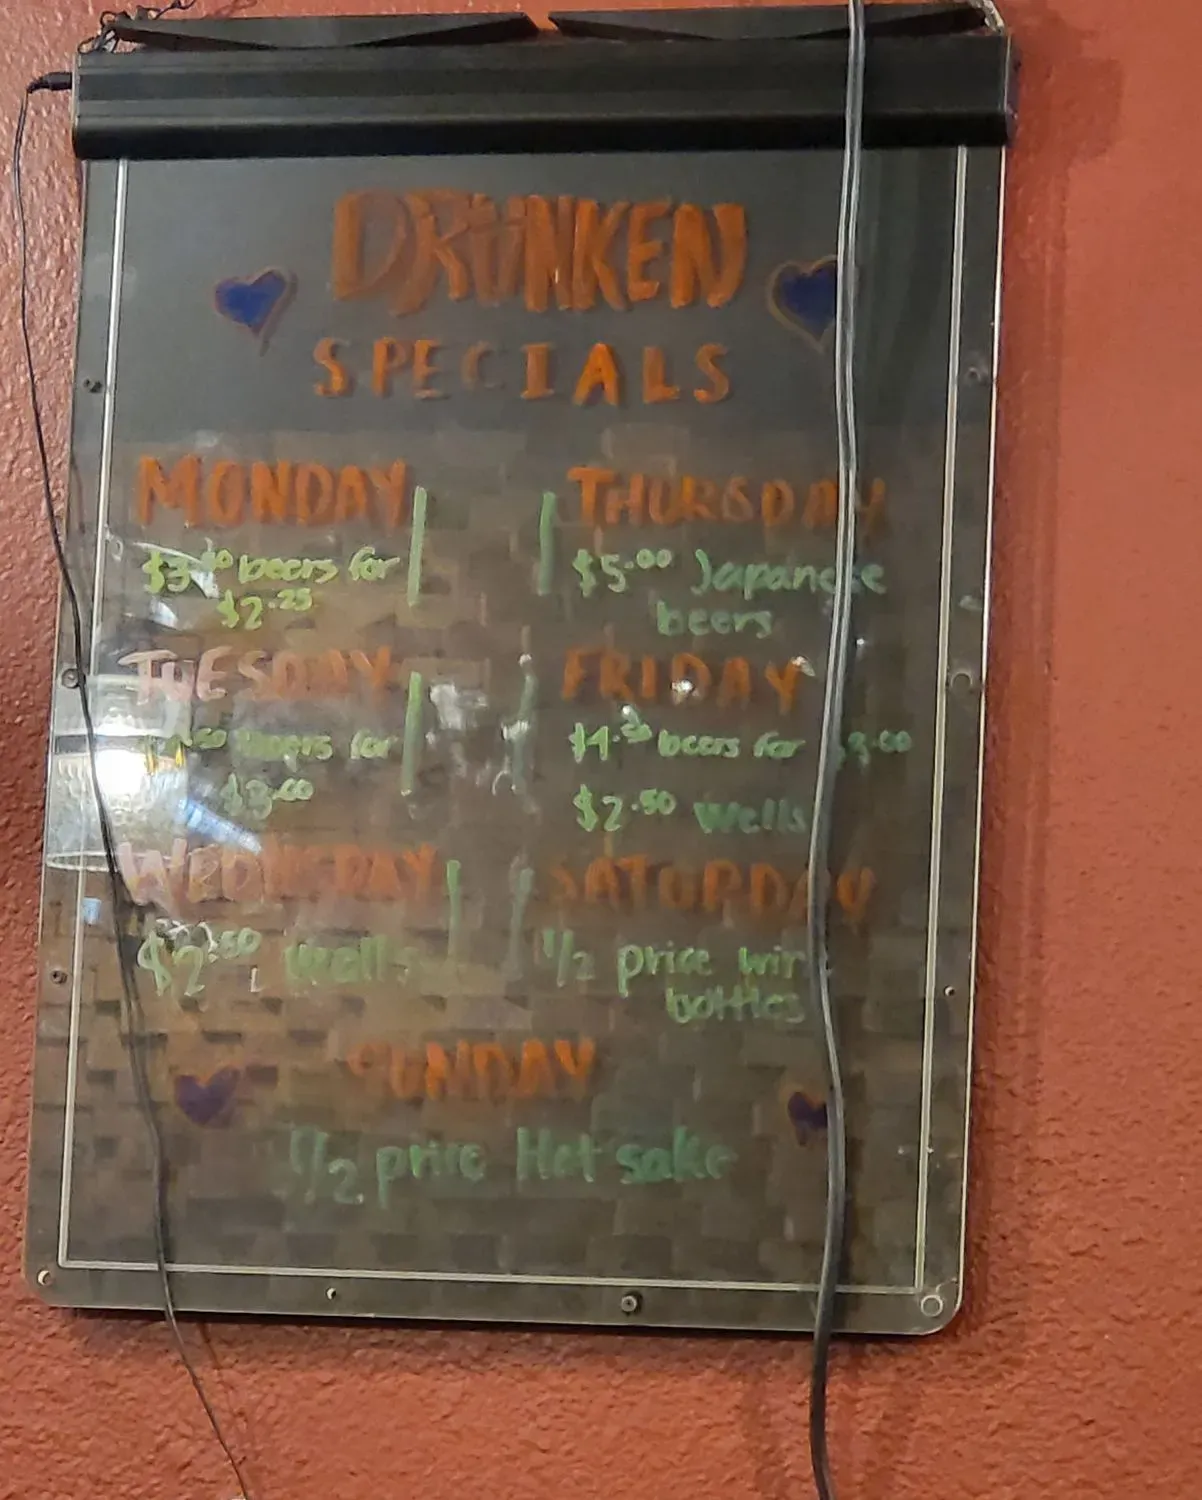 DRUNKEN
SPECIALS
MONDAY
beers for
$2.25
TUESDAY
beers for
$3.00
WEDNESDAY
$2.50 Wells
THURSDAY
$5.00 Japanese
beers
FRIDAY
$4.50 beers for $3.00
$2.50 Wells
SATURDAY
1/2 price wine
bottles
SUNDAY
1/2 price Hot sake